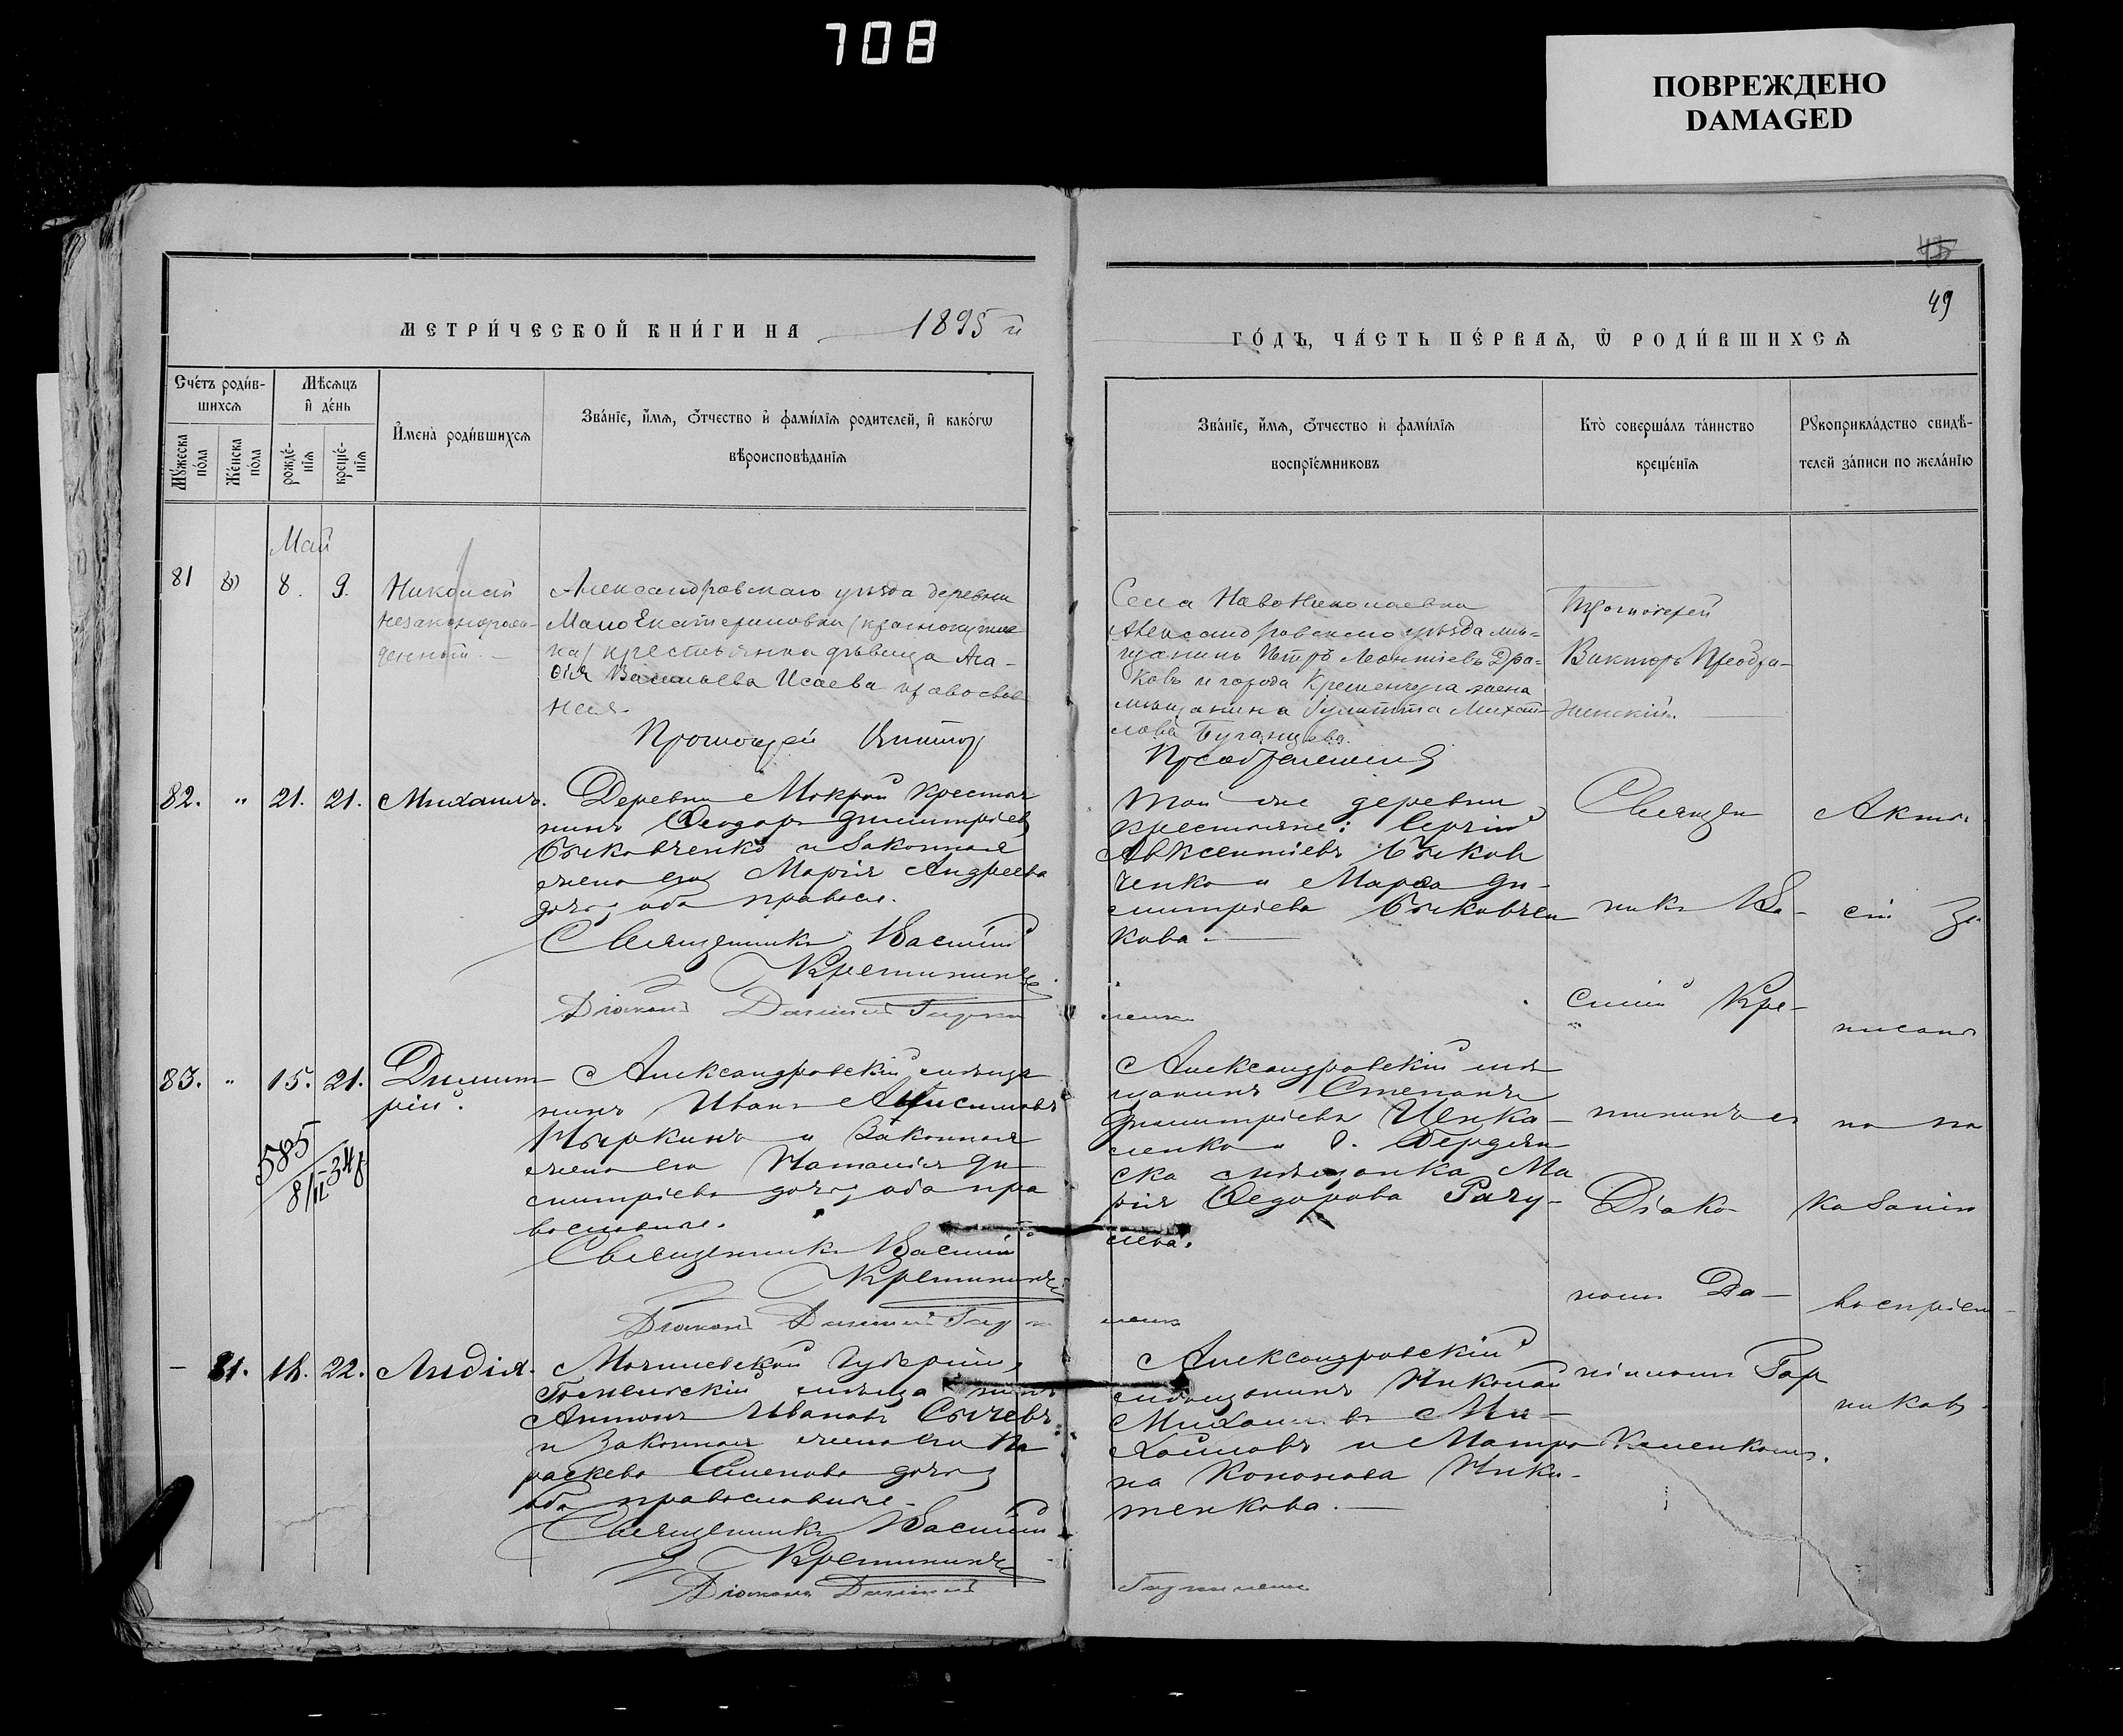 708
ПОВРЕЖДЕНО
DAMAGED
49
МЕТРИ́ЧЕСКОЙ КНИ́ГИ НА 1895 й
ГО́ДЪ, ЧА́СТЬ ПЕ́РВАѦ, Ѿ РОДИ́ВШИХСѦ
Сче́тъ роди́в-
шихсѧ
Мѣсѧцъ
и҆ де́нь
Мꙋ́жеска
по́ла
Же́нска
по́ла
рожде́-
нїѧ
креще́-
нїѧ
И҆мена̀ роди́вшихсѧ
Зва́нїе, и҆́мѧ, ѻ҆́тчество и҆ фами́лїѧ родителей, и҆ како́гѡ
вѣроисповѣ́данїѧ
Зва́нїе, и҆́мѧ, ѻ҆́тчество и҆ фами́лїѧ
воспрїе́мниковъ
Кто̀ соверша́лъ та́инство
креще́нїѧ
Рꙋкоприкла́дство свидѣ́-
телей за́писи по жела́нїю
Май
81 8. 9. Николай
незаконорож-
денный. —
Александровскаго уѣзда деревни
Мало Екатериновки
крестьянка дѣвица Ага-
ѳія Васильева Исаева православ
ная.
Протоіерей Виктор
Села НовоНиколаевки
Александровскаго уѣзда мѣ-
щанинъ Петръ Леонтіевъ Дра-
ковъ и города Кременчуга жена
мѣщанина Михай-
лова
Протоіерей
Викторъ Преобра-
женскій.
82. " 21. 21. Михаилъ.
Деревни Мокрой крестья
нинъ Ѳеодоръ Димитріевъ
Быковченко и законная
жена его Марія Андреева
дочь, оба правосл.
Священникъ Василій
Кремининъ
Діаконъ Даніилъ
Той же деревни
крестьяне: Сергій
Авксентіевъ Быков
ченко и Марѳа Ди-
митріева Быковчен
кова. —
Священ
никъ Ва-
силій Кре-
мининъ съ
Діако-
номъ Да-
ніиломъ Гор
Акто
сей за
писанъ
по по
казанію
воспріем-
никовъ.
83. " 15. 21. Димит-
рій.
585
8/II-34г
Александровскій мѣща
нинъ Иванъ Анисимовъ
Пыркинъ и законная
жена его Наталія Ди
митріева дочь, оба пра
вославные.
Священникъ Василій
Кремининъ
Діаконъ Даніилъ
Александровскій мѣ
щанинъ Степанъ
Димитріевъ
ленко и г. Бердян
ска мѣщанка Ма
рія Ѳедорова Рагу-
лева.
— 81. 18. 22. Лидія.
Могилевской губерніи,
мѣщанинъ
Антонъ Ивановъ Сычевъ
и законная жена его Па
раскева Симеонова дочь,
оба православные.
Священникъ Василій
Кремининъ
Діаконъ Даніилъ
Александровскій
мѣщанинъ Николай
Михаиловъ Ми-
хайловъ и Матро
на Кононова Ники-
тенкова. —